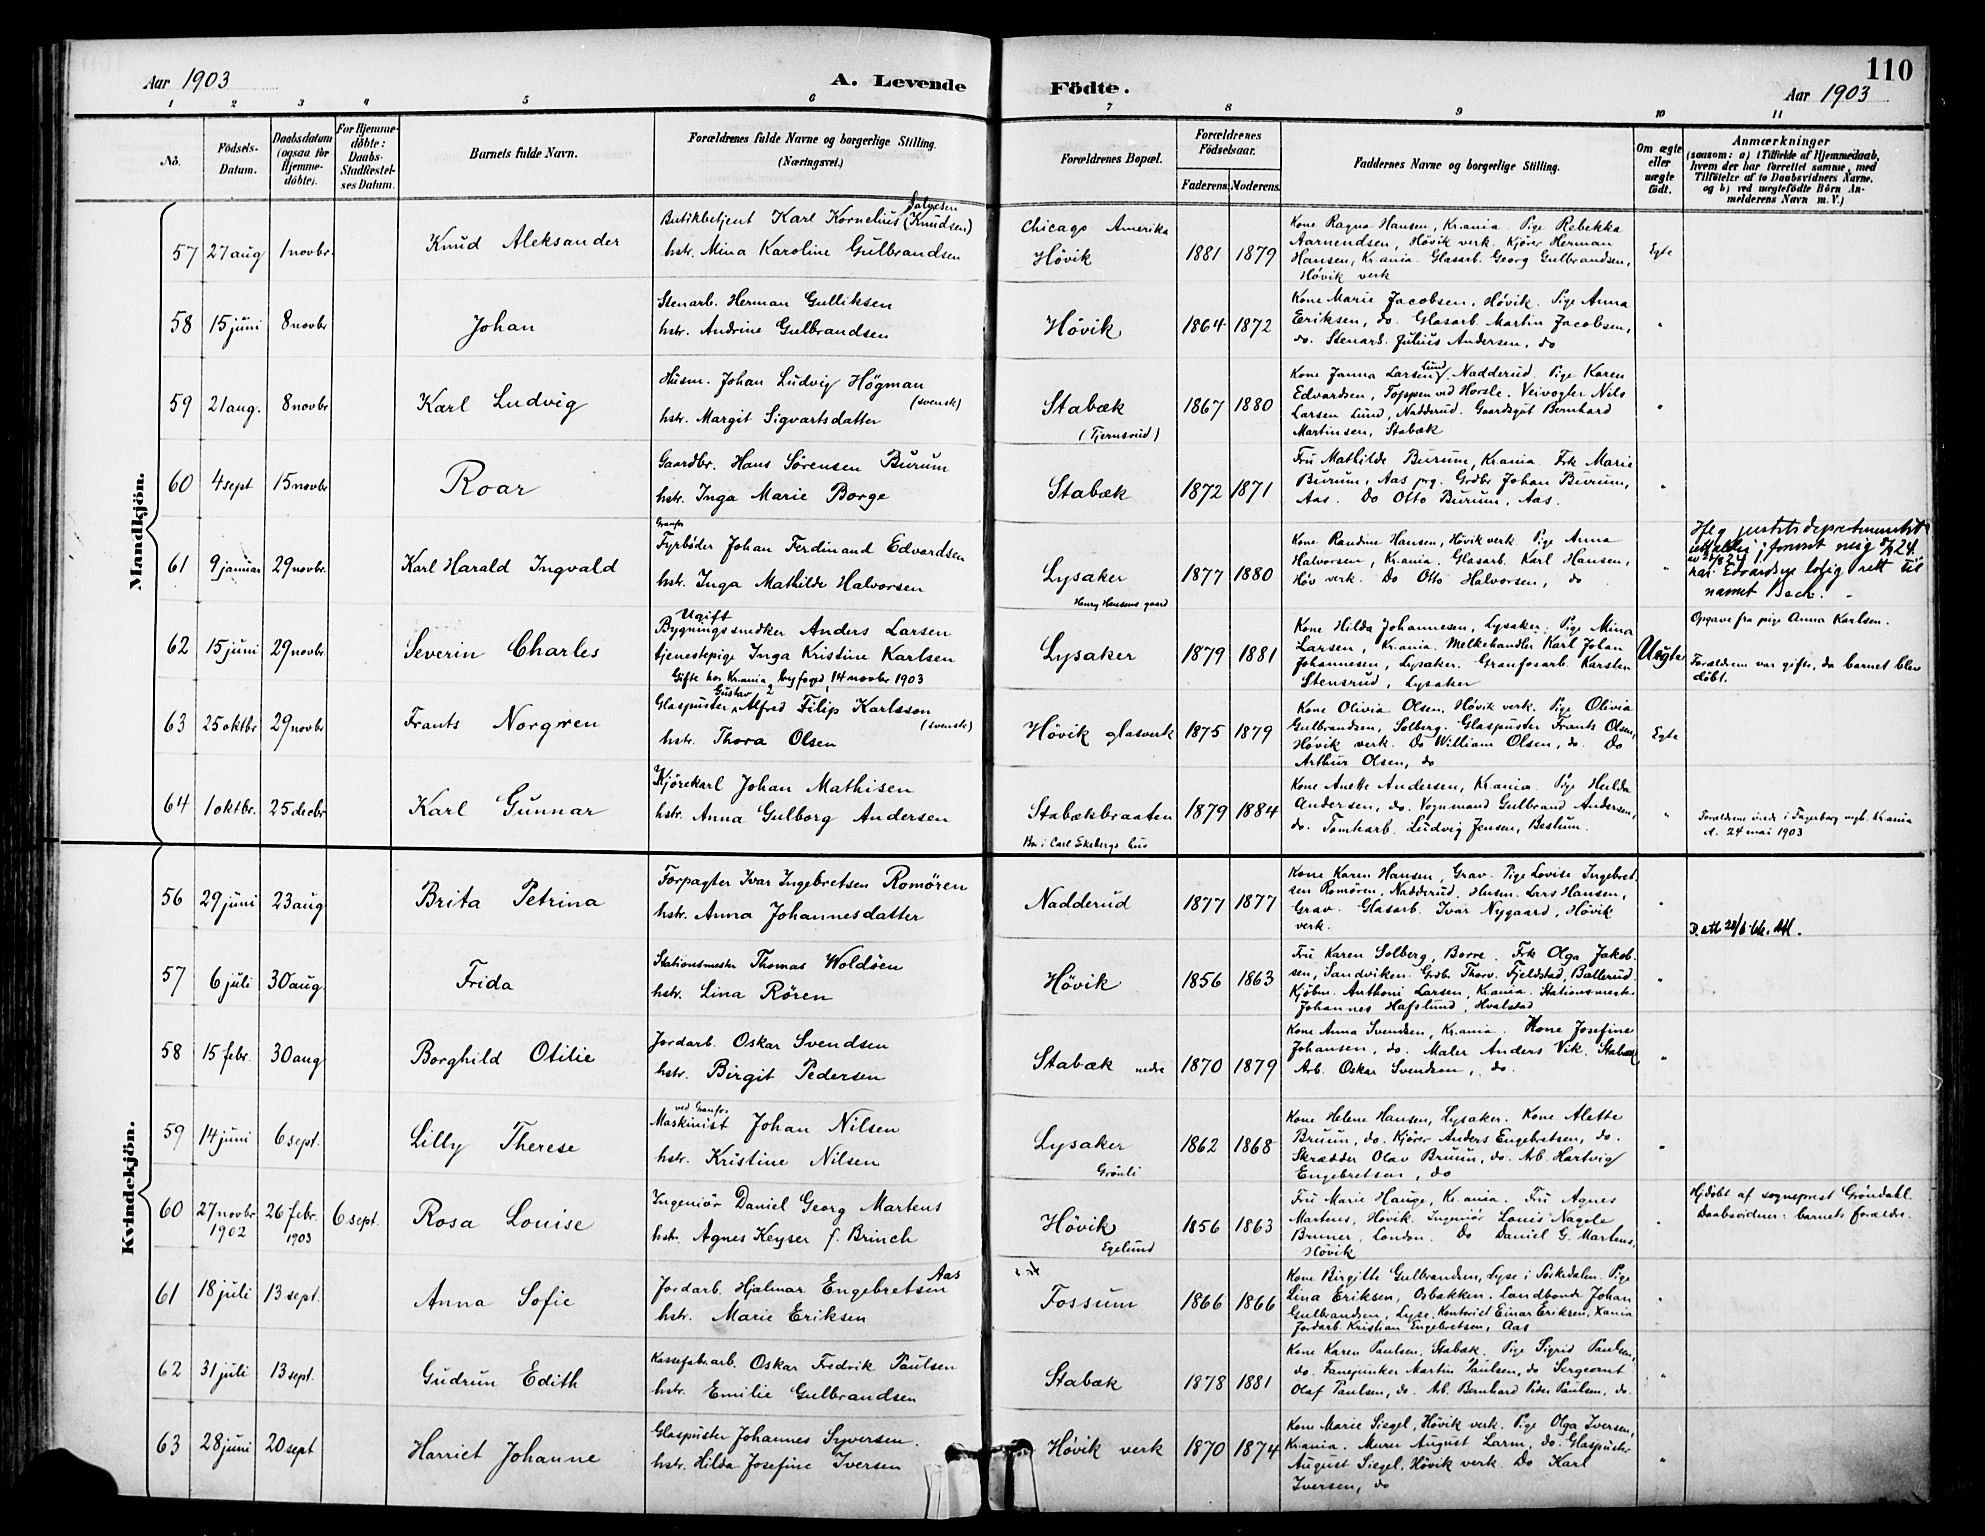 110
Aar 1903
A. Levende
Födte.
Aar 1903
1 2 3 4 5 6 7 8 9 10 11
No.
Födsels-Datum.
Daabsdatum (ogsaa for Hjemme-döbte).
For Hjemme-döbte: Daabs-Stadfæstel-ses Datum.
Barnets fulde Navn.
Forældrenes fulde Navne og borgerlige Stilling. (Næringsvei.)
Forældrenes Bopæl.
Forældrenes Födselsaar.
Faderens. Moderens.
Faddernes Navne og borgerlige Stilling.
Om ægte eller uægte födt.
Anmærkninger
(saasom: a) i Tilfælde af Hjemmedaab, hvem der har forrettet samme, med Tilföielse af to Daabsvidners Navne, og b) ved uægtefödte Börn An-melderens Navn m. V.)
Mandkjön.
57 27 aug 1 novbr. Knud Aleksander
Butikbetjent Karl Kornelius (Knudsen)
hstr. Mina Karoline Gulbrandsen
Chicago Amerika
Høvik
1881 1879
Kone Ragna Hansen, Kr.ania. Pige Rebekka
Aarnendsen, Høvik verk. Kjører Herman
Hansen, Kr.ania. Glasarb. Georg Gulbrandsen,
Høvik verk
Egte
58 15 juni 8 novbr Johan
Stenarb. Herman Gulliksen
hstr. Andrine Gulbrandsen
Høvik
1864 1872
Kone Marie Jacobsen, Høvik. Pige Anna
Eriksen, do. Glasarb. Martin Jacobsen,
do. Stenarb. Julius Andersen, do
"
59 21 aug. 8 novbr Karl Ludvig
Husm. Johan Ludvig Högman
(svensk)
hstr. Margit Sigvartsdatter
Stabæk
(Tjernsrud)
1867 1880
Kone Janna Larsen Lund, Nadderud. Pige Karen
Edvardsen, Toppen ved Horsle. Veivogter Nils
Larsen Lund, Nadderud. Gaardsgut Bernhard
Martinsen, Stabæk
"
60 4 sept 15 novbr Roar
Gaardbr. Hans Sørensen Burum
hstr. Inga Marie Borge
Stabæk
1872 1871
Fru Mathilde Burum, Kr.ania. Frk Marie
Burum, Aas prg. Grdbr Johan Burum,
Aas. Do Otto Burum, Aas.
"
61 9 januar 29 novbr. Karl Harald Ingvald
Granfos
Fyrbøder Johan Ferdinand Edvardsen
hstr. Inga Mathilde Halvorsen
Lysaker
Henry Hansens gaard
1877 1880
Kone Randine Hansen, Høvik verk. Pige Anna
Halvorsen, Kr.ania. Glasarb. Karl Hansen,
Høv verk. Do Otto Halvorsen, do
"
har Edvardsen lovlig rett til
navnet Beck.
62 15 juni 29 novbr. Severin Charles
Ugift
Bygningssnedker Anders Larsen
tjenestepige Inga Kristine Karlsen
Gifte hos Kr.ania byfoged, 14 novbr 1903
Lysaker
1879 1881
Kone Hilda Johannesen, Lysaker. Pige Mina
Larsen, Kr.ania. Melkehandler Karl Johan
Johannesen, Lysaker. Granfosarb. Karsten
Stensrud, Lysaker
Uægte
Opgave fra pige Anna Karlsen.
Forældrene var gifte, da barnet blev
døbt.
63 25 oktbr 29 novbr Frants Norgren
Gustav
Glaspuster Alfred Filip Karlsson
(svensk)
hstr. Thora Olsen
Høvik glasverk
1875 1879
Kone Olivia Olsen, Høvik verk. Pige Olivia
Gulbrandsen, Solberg. Glaspuster Frants Olsen,
Høvik verk. Do William Olsen, do. Do
Arthur Olsen, do
Egte
64 1 oktbr. 25 decbr Karl Gunnar
Kjørekarl Johan Mathisen
hstr. Anna Gulborg Andersen
Stabækbraaten
Bor i Carl Ekebergs hus
1879 1884
Kone Anette Andersen, Kr.ania. Pige Hulda
Andersen, do. Vognmand Gulbrand Andersen,
do. Tomtearb. Ludvig Jensen, Bestum.
"
Forældrene viede i Fagerborg mgh. Kr.ania
d. 24 mai 1903
Kvindekjön.
56 29 juni 23 aug Brita Petrina
Forpagter Ivar Ingebretsen Romören
hstr. Anna Johannesdatter
Nadderud
1877 1877
Kone Karen Hansen, Grav. Pige Lovise Ingebret
sen Romören, Nadderud. Husm. Lars Hansen,
Grav. Glasarb. Ivar Nygaard, Høvik
verk.
"
57 6 juli 30 aug. Frida
Stationsmester Thomas Woldsen
hstr. Lina Røren
Høvik
1856 1863
Fru Karen Solberg, Borre. Frk Olga Jakob-
sen, Sandviken. Grdbr Thorv. Fjeldstad, Ballerud
Kjøbm. Anthoni Larsen, Kr.ania. Stationsmester
Johannes Hafslund, Hvalstad
"
58 15 febr. 30 aug Borghild Otilie
Jordarb. Oskar Svendsen
hstr. Birgit Pedersen
Stabæk nedre
1870 1879
Kone Anna Svendsen, Kr.ania. Kone Josefine
Johansen, do. Maler Anders Vik, Stabæk
Arb. Oskar Svendsen, do.
"
59 14 juni 6 sept. Lilly Therese
ved Granfos
Maskinist Johan Nilsen
hstr. Kristine Nilsen
Lysaker
Grönli
1862 1868
Kone Helene Hansen, Lysaker. Kone Alette
Bruun, do. Kjører Anders Engebretsen, do.
Skrædder Olav Bruun, do. Arb. Hartvig
Engebretsen, do
"
60 27 novbr 1902 26 febr. 1903 6 sept. Rosa Louise
Ingeniör Daniel Georg Martens
hstr. Agnes Keyser f. Brinch
Høvik
Egelund
1856 1863
Fru Marie Hauge, Kr.ania. Fru Agnes
Martens, Høvik. Ingeniør Louis Nagele
Bruner, London. Do Daniel G. Martens,
Høvik
"
Hjdøbt af sogneprest Gröndahl.
Daabsvidner: barnets forældre.
61 18 juli 13 sept. Anna Sofie
Jordarb. Hjalmar Engebretsen Aas
hstr. Marie Eriksen
Fossum
1866 1866
Kone Birgitte Gulbrandsen, Lyse i Sørkedalen. Pige
Lina Eriksen, Osbakken. Landbonde Johan
Gulbrandsen, Lyse. Kontorist Einar Eriksen, Xania
Jordarb. Kristian Engebretsen, Aas
"
62 31 juli 13 sept. Gudrun Edith
Kassefabr.arb. Oskar Fredrik Paulsen
hstr. Emilie Gulbrandsen
Stabæk
1878 1881
Kone Karen Paulsen, Stabæk. Pige Sigrid Paulsen,
do. Fanejunker Martin Paulsen, do Sergeant
Olaf Paulsen, do. Arb. Bernhard Peder Paulsen, do.
"
63 28 juni 20 sept Harriet Johanne
Glaspuster Johannes Syversen.
hstr. Hilda Josefine Iversen
Høvik verk
1870 1874
Kone Marie Siegel, Høvik verk. Pige Olga Iversen,
Kr.ania. Murer August Larm, do. Glaspuster
August Siegel, Høvik verk. Do Karl
Iversen, do
"